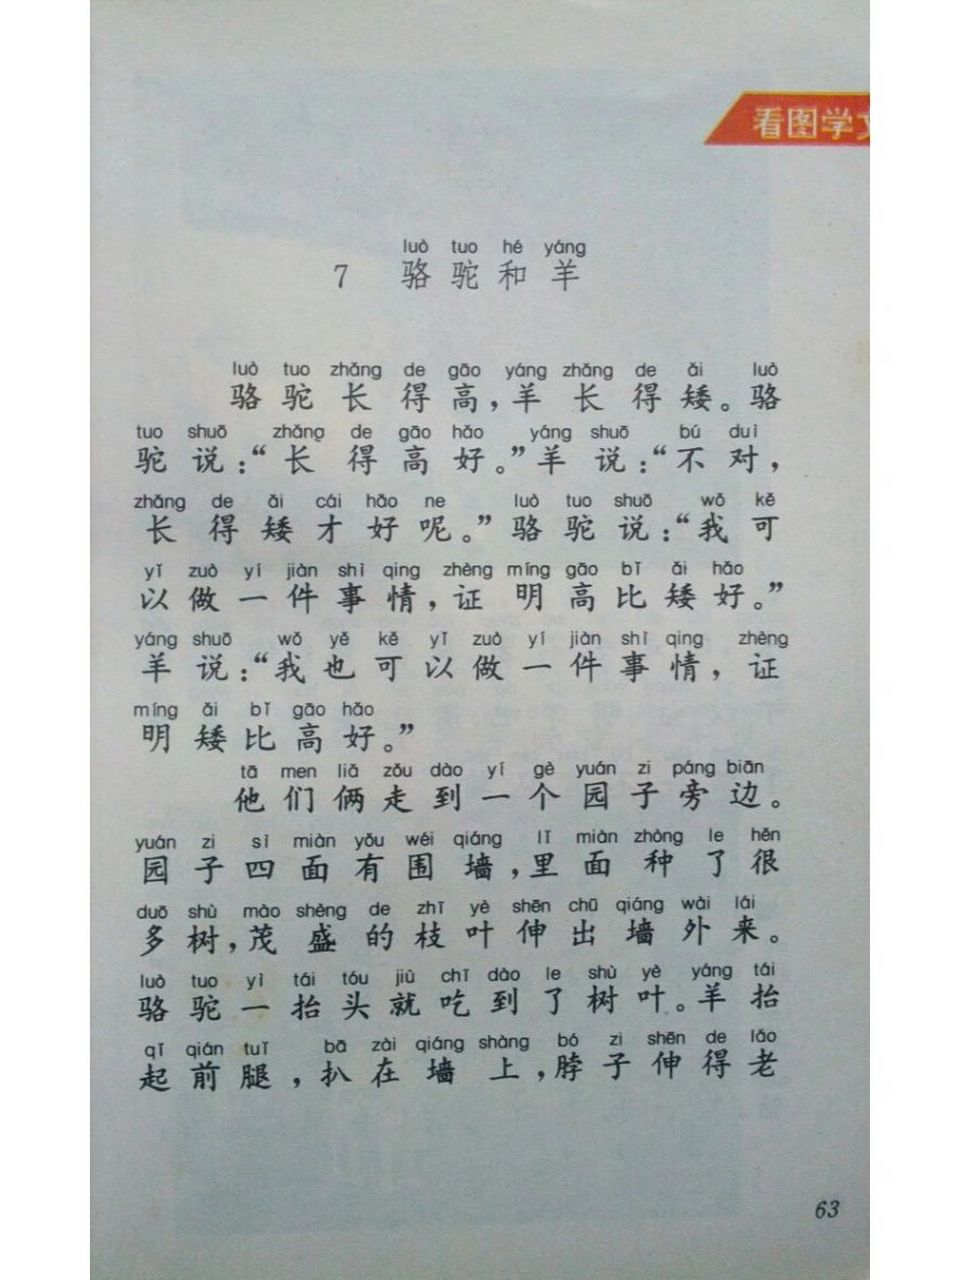 看图学文
luò tuo hé yáng
7 骆驼和羊
luò tuo zhǎng de gāo yáng zhǎng de ǎi luò
骆驼长得高，羊长得矮。骆
tuo shuō zhǎng de gāo hǎo yáng shuō bú duì
驼说：“长得高好。”羊说：“不对，
zhǎng de ǎi cái hǎo ne luò tuo shuō wǒ kě
长得矮才好呢。”骆驼说：“我可
yǐ zuò yí jiàn shì qing zhèng míng gāo bǐ ǎi hǎo
以做一件事情，证明高比矮好。”
yáng shuō wǒ yě kě yǐ zuò yí jiàn shì qing zhèng
羊说：“我也可以做一件事情，证
míng ǎi bǐ gāo hǎo
明矮比高好。”
tā men liǎ zǒu dào yí gè yuán zi páng biān
他们俩走到一个园子旁边。
yuán zi sì miàn yǒu wéi qiáng lǐ miàn zhòng le hěn
园子四面有围墙，里面种了很
duō shù mào shèng de zhī yè shēn chū qiáng wài lái
多树，茂盛的枝叶伸出墙外来。
luò tuo yì tái tóu jiù chī dào le shù yè yáng tái
骆驼一抬头就吃到了树叶。羊抬
qǐ qián tuǐ bā zài qiáng shàng bó zi shēn de lǎo
起前腿，扒在墙上，脖子伸得老
63